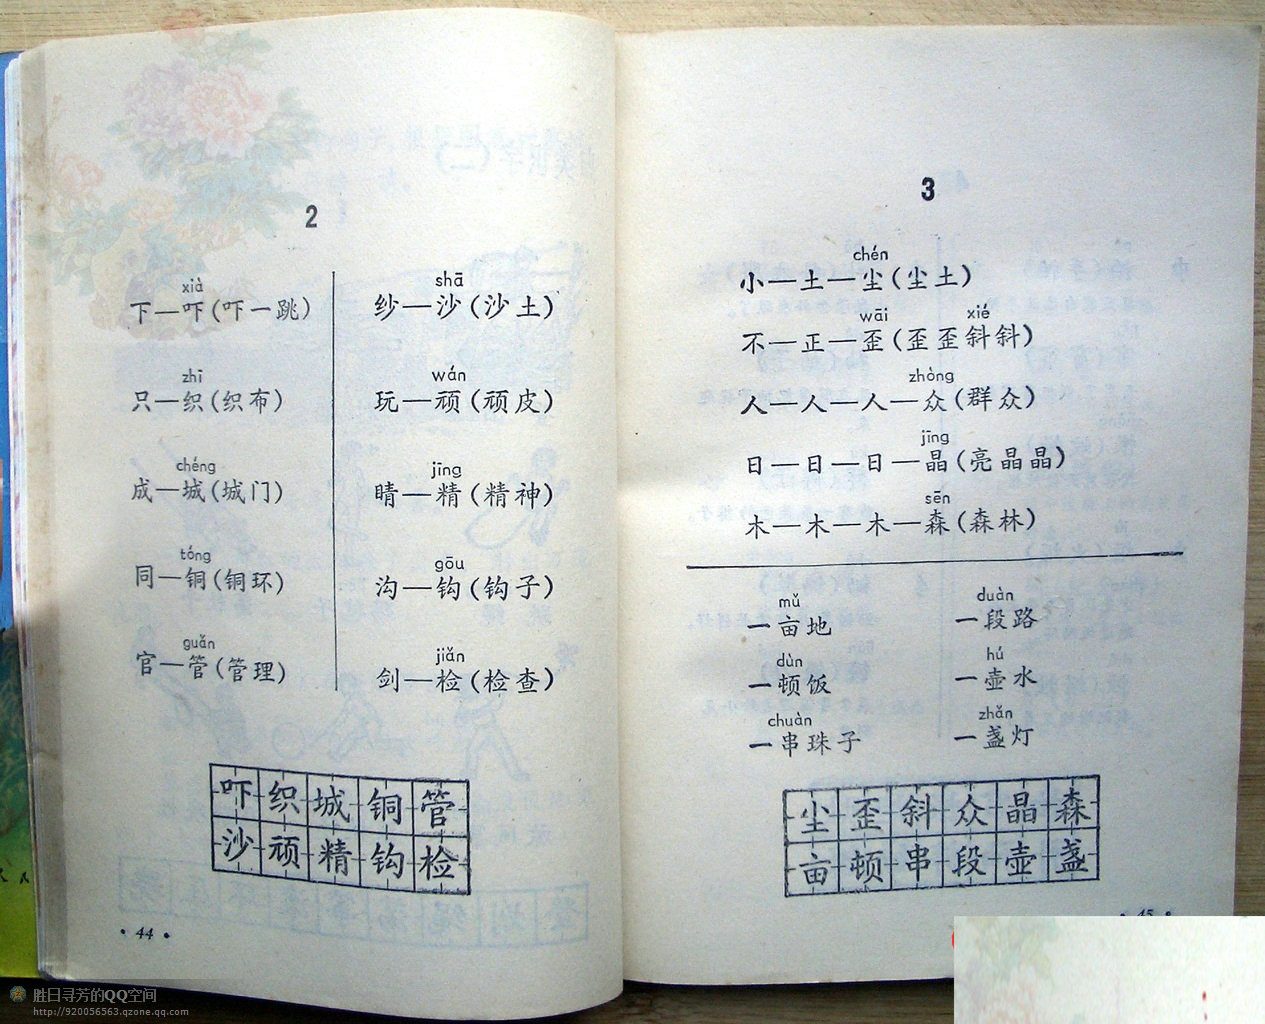 2
xià
下—吓(吓一跳)
zhī
只—织(织布)
chéng
成—城(城门)
tóng
同—铜(铜环)
guǎn
官—管(管理)
shā
纱—沙(沙土)
wán
玩—顽(顽皮)
jīng
晴—精(精神)
gōu
沟—钩(钩子)
jiǎn
剑—检(检查)
吓织城铜管
沙顽精钩检
• 44 •
3
chén
小—土—尘(尘土)
wāi xié
不—正—歪(歪歪斜斜)
zhòng
人—人—人—众(群众)
jīng
日—日—日—晶(亮晶晶)
sēn
木—木—木—森(森林)
mǔ
一亩地
dùn
一顿饭
chuàn
一串珠子
duàn
一段路
hú
一壶水
zhǎn
一盏灯
尘歪斜众晶森
亩顿串段壶盏
• 45 •
胜日寻芳的QQ空间
http://920056563.qzone.qq.com